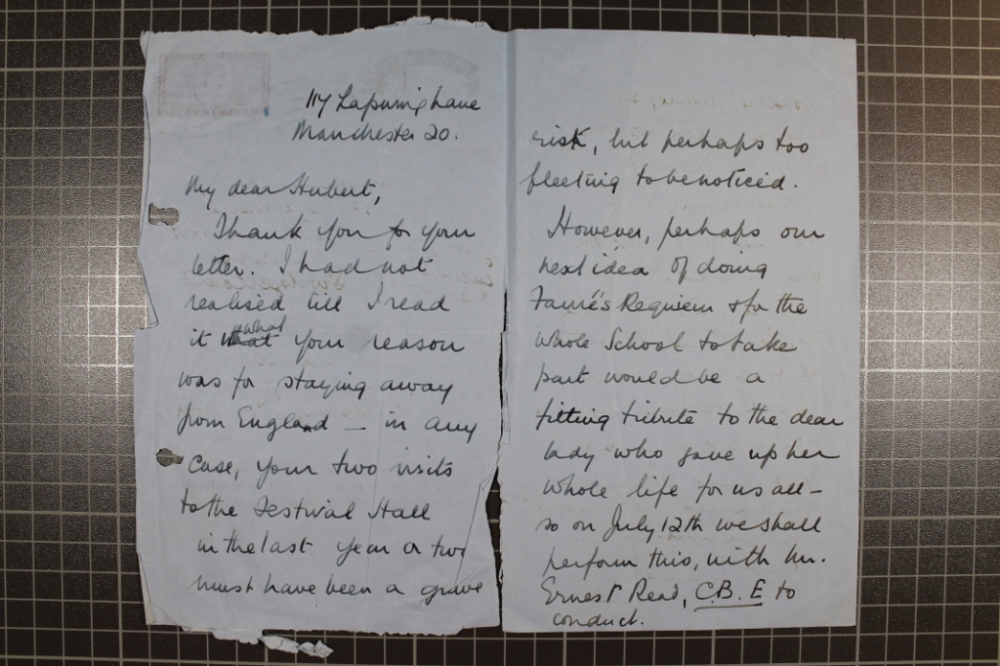 117 Lapwing Lane
Manchester 20.
My dear Hubert,
Thank you for your
letter. I had not
realised till I read
it what your reason
was for staying away
from England – in any
case, your two visits
to the Festival Hall
in the last year or two
must have been a grave
risk, but perhaps too
fleeting to be noticed.
However, perhaps our
next idea of doing
Fauré's Requiem & for the
whole School to take
part would be a
fitting tribute to the dear
lady who gave up her
whole life for us all –
so on July 12th we shall
perform this, with Mr.
Ernest Read, C.B.E to
conduct.